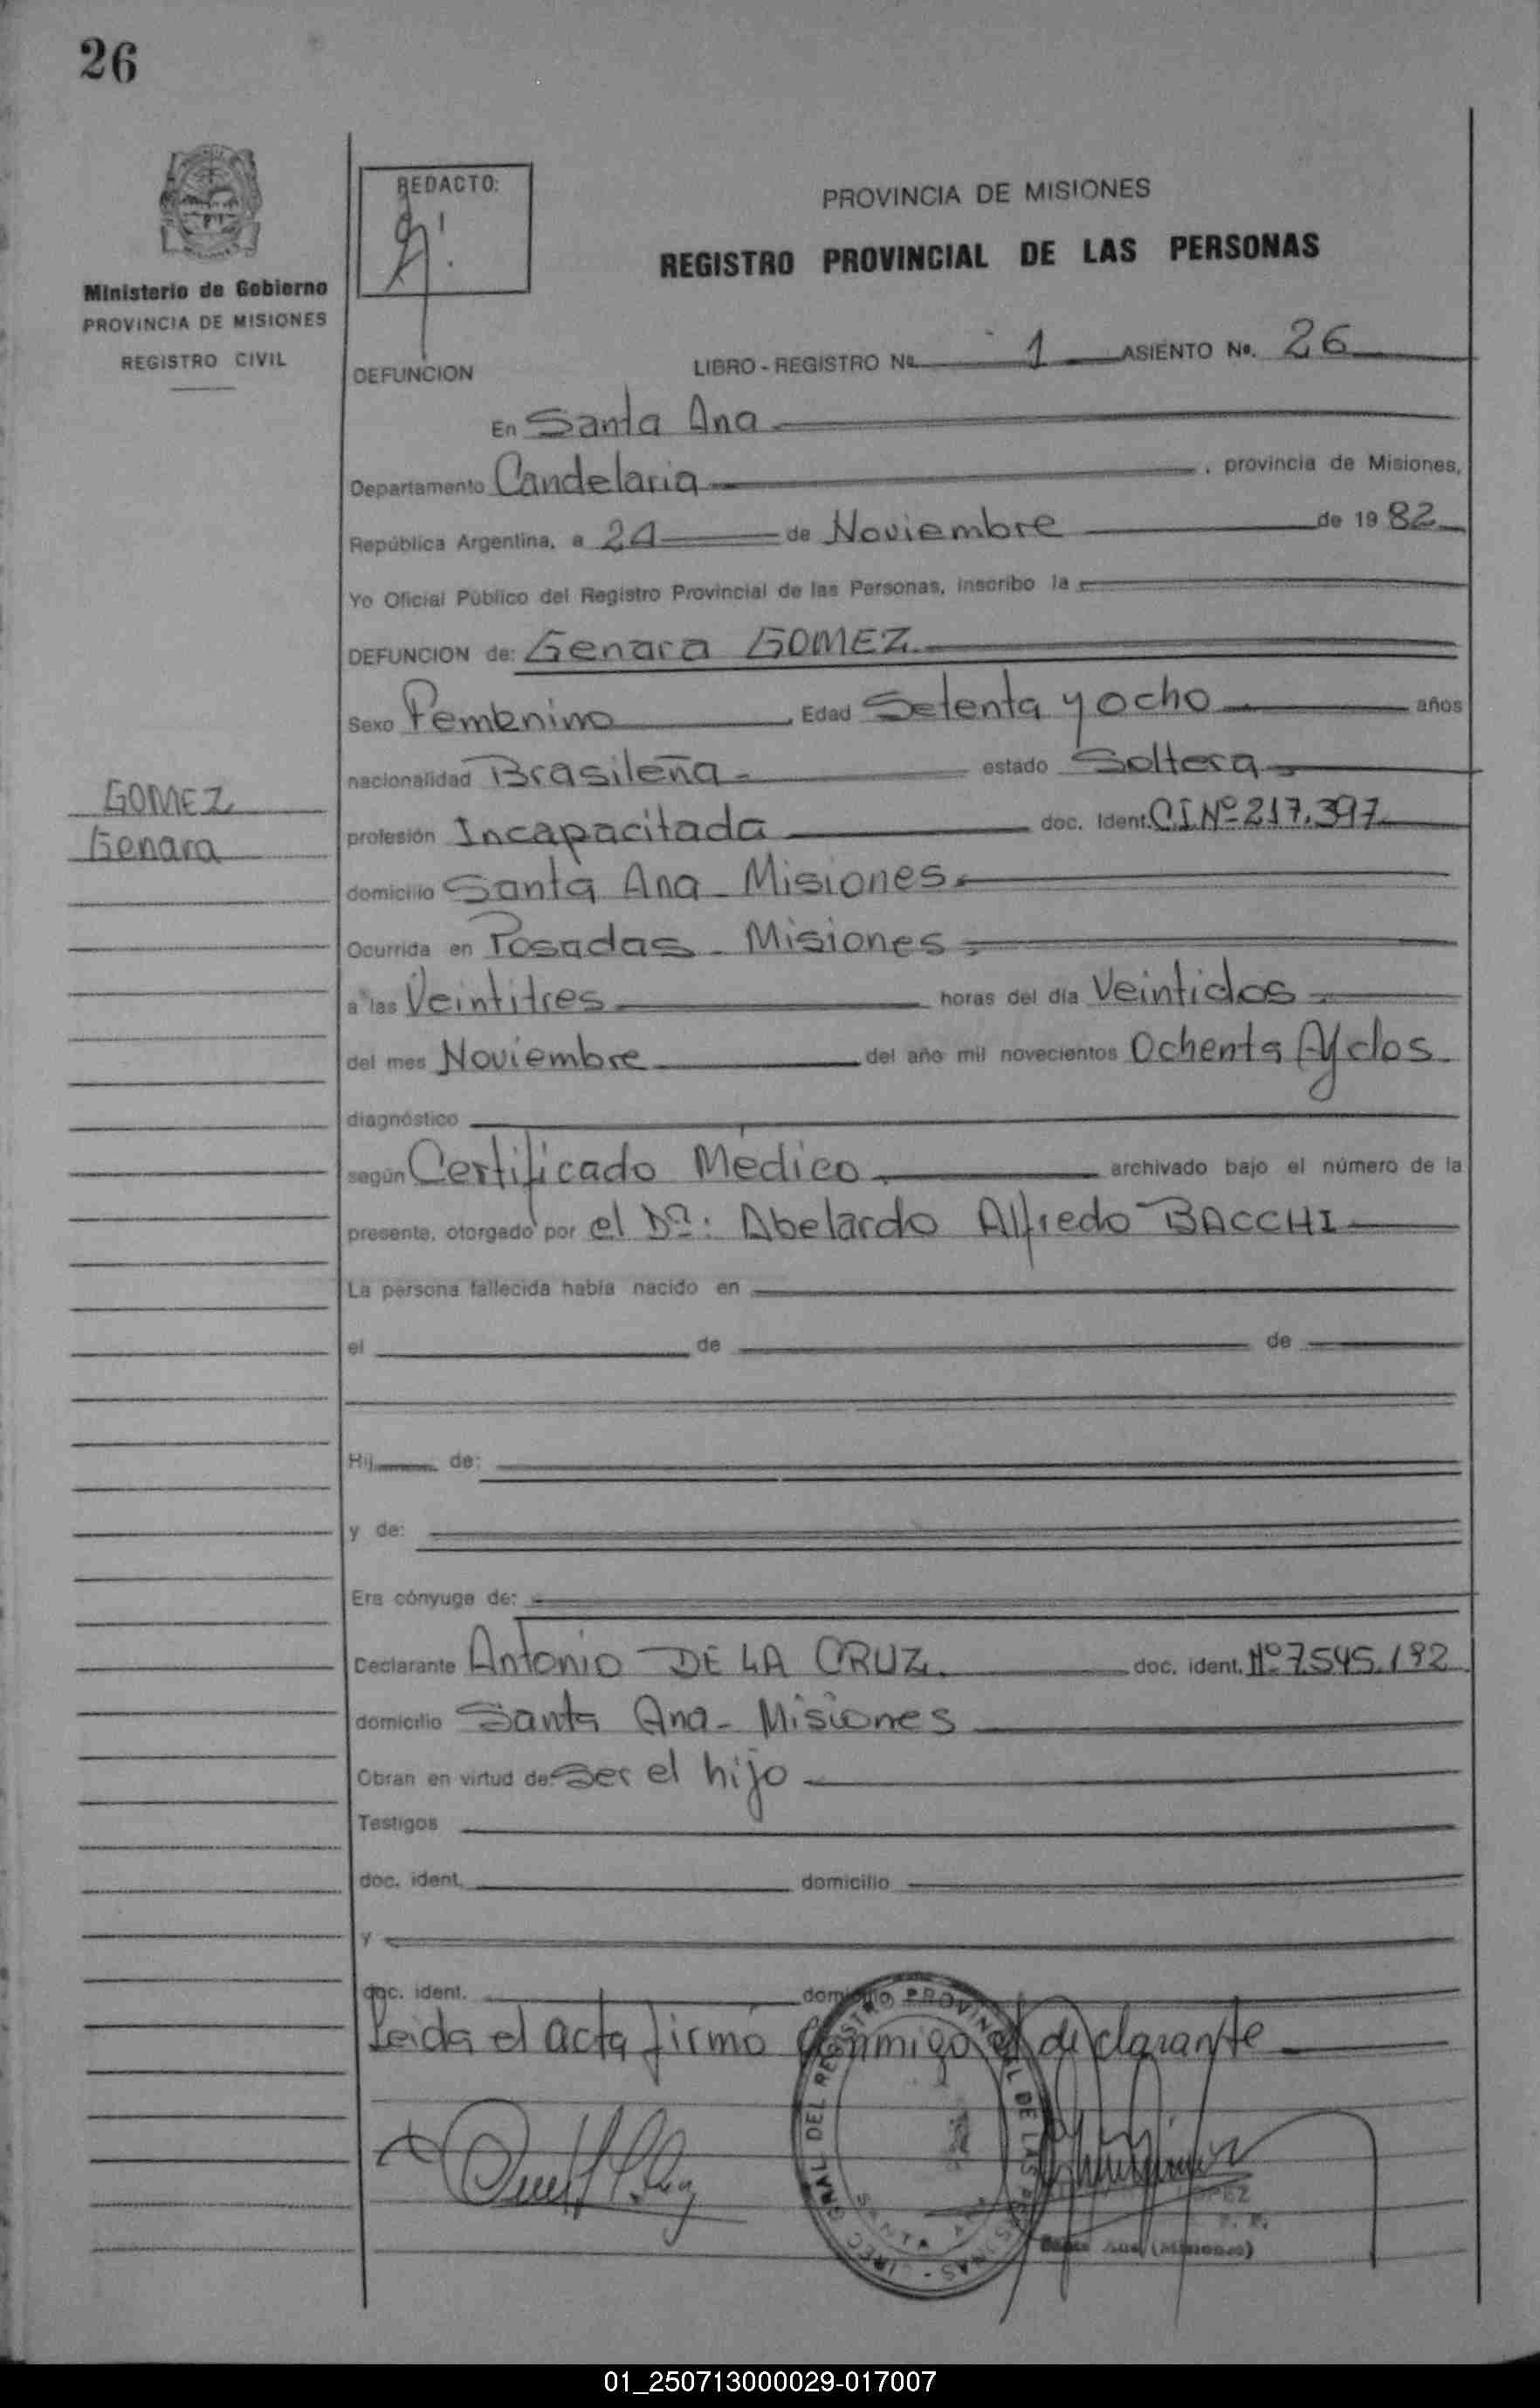 26
Ministerio de Gobierno
PROVINCIA DE MISIONES
REGISTRO CIVIL
REDACTO:
PROVINCIA DE MISIONES
REGISTRO PROVINCIAL DE LAS PERSONAS
DEFUNCION LIBRO - REGISTRO Nº 1 ASIENTO Nº. 26
En Santa Ana
Departamento Candelaria , provincia de Misiones,
República Argentina, a 24 de Noviembre de 1982
Yo Oficial Público del Registro Provincial de las Personas, inscribo la
DEFUNCION de: Genara GOMEZ
Sexo Femenino , Edad Setenta y ocho años
nacionalidad Brasileña estado Soltera
GOMEZ
Genara
profesión Incapacitada doc. Ident. C.I Nº 217.397
domicilio Santa Ana - Misiones
Ocurrida en Posadas - Misiones
a las Veintitres horas del día Veintidos
del mes Noviembre del año mil novecientos Ochenta y dos
diagnóstico
según Certificado Medico archivado bajo el número de la
presente, otorgado por el Dr: Abelardo Alfredo BACCHI
La persona fallecida había nacido en
el de de
Hij de:
y de:
Era cónyuge de:
Declarante Antonio DE LA CRUZ doc. ident. Nº 7545.192
domicilio Santa Ana - Misiones
Obran en virtud de: Ser el hijo
Testigos
doc. ident. domicilio
y
doc. ident. domicilio
Leida el acta firmo Conmigo el declarante
DEL REGISTRO PROVINCIAL DE LAS
SANTA
Santa Ana (Misiones)
01_250713000029-017007